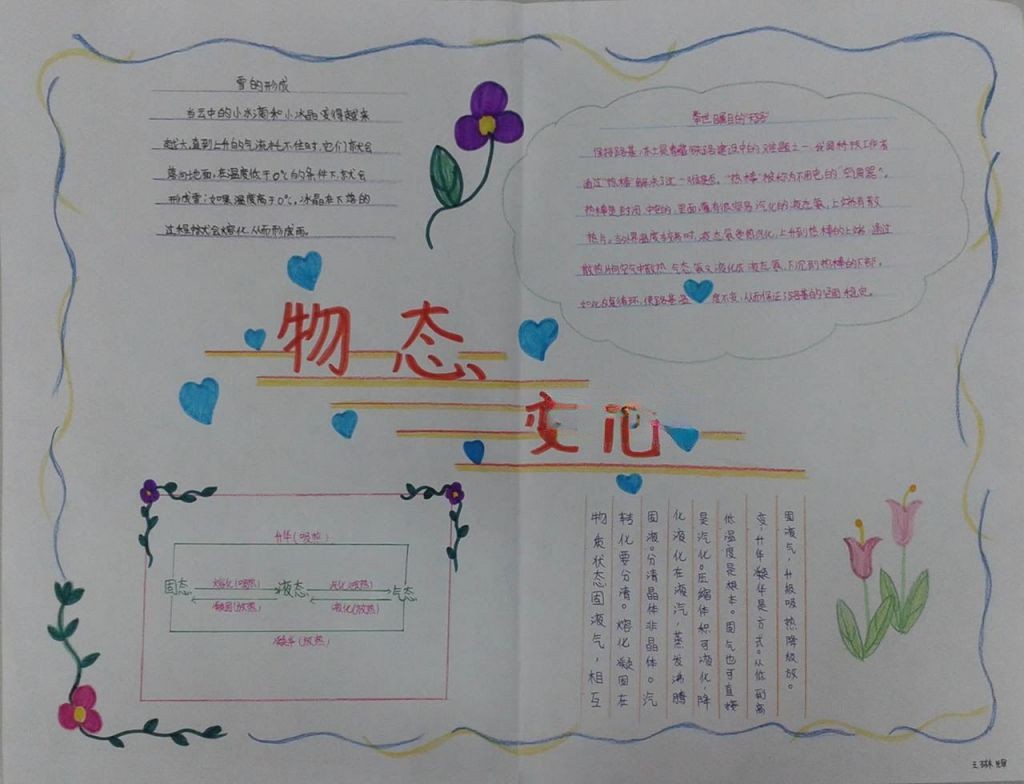 雪的形成
当云中的小水滴和小冰晶变得越来
越大,直到上升的气流托不住时,它们就会
落向地面,在温度低于0℃的条件下,就会
形成雪;如果温度高于0℃,冰晶在下落的
过程中就会熔化,从而形成雨。
举世瞩目的"天路"
保持路基、冻土是青藏铁路建设中的难题之一,我国科技工作者
通过"热棒"解决了这一难题。"热棒"被称为不用电的"空调器"。
热棒是封闭中空的,里面灌有很容易汽化的液态氨,上端有散
热片。当外界温度较高时,液态氨受热汽化,上升到热棒的上端,通过
散热片向空气中散热,气态氨又液化成液态氨,下沉到热棒的下部。
如此往复循环,使路基温度不变,从而保证了路基的坚固稳定。
物态
变化
升华(吸热)
固态
熔化(吸热)
液态
汽化(吸热)
气态
凝固(放热)
液化(放热)
凝华(放热)
固液气,升级吸热降级放。
变,升华凝华是方式。从低到高
低温度是根本。固气也可直接
是汽化。压缩体积可液化,降
化液化在液汽,蒸发沸腾
固液。分清晶体非晶体。汽
转化要分清。熔化凝固在
物质状态固液气,相互